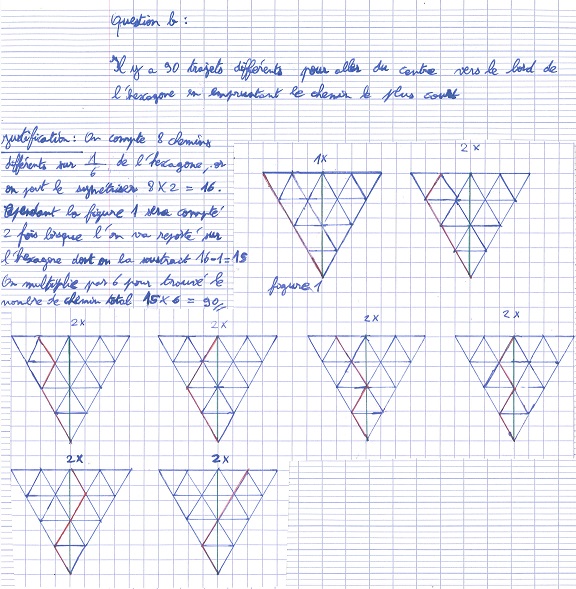 Question b :
Il y a 90 trajets différents pour aller du centre vers le bord de
l'hexagone en empruntant le chemin le plus court
Justification : On compte 8 chemins
différents sur 1/6 de l'hexagone, or
on peut le symétriser 8 x 2 = 16.
Cependant la figure 1 sera compté
2 fois lorsque l'on va reporté sur
l'hexagone dont on la soustrait 16-1=15
On multiplie par 6 pour trouvé le
nombre de chemin total 15 x 6 = 90
1x
2x
figure 1
2x
2x
2x
2x
2x
2x